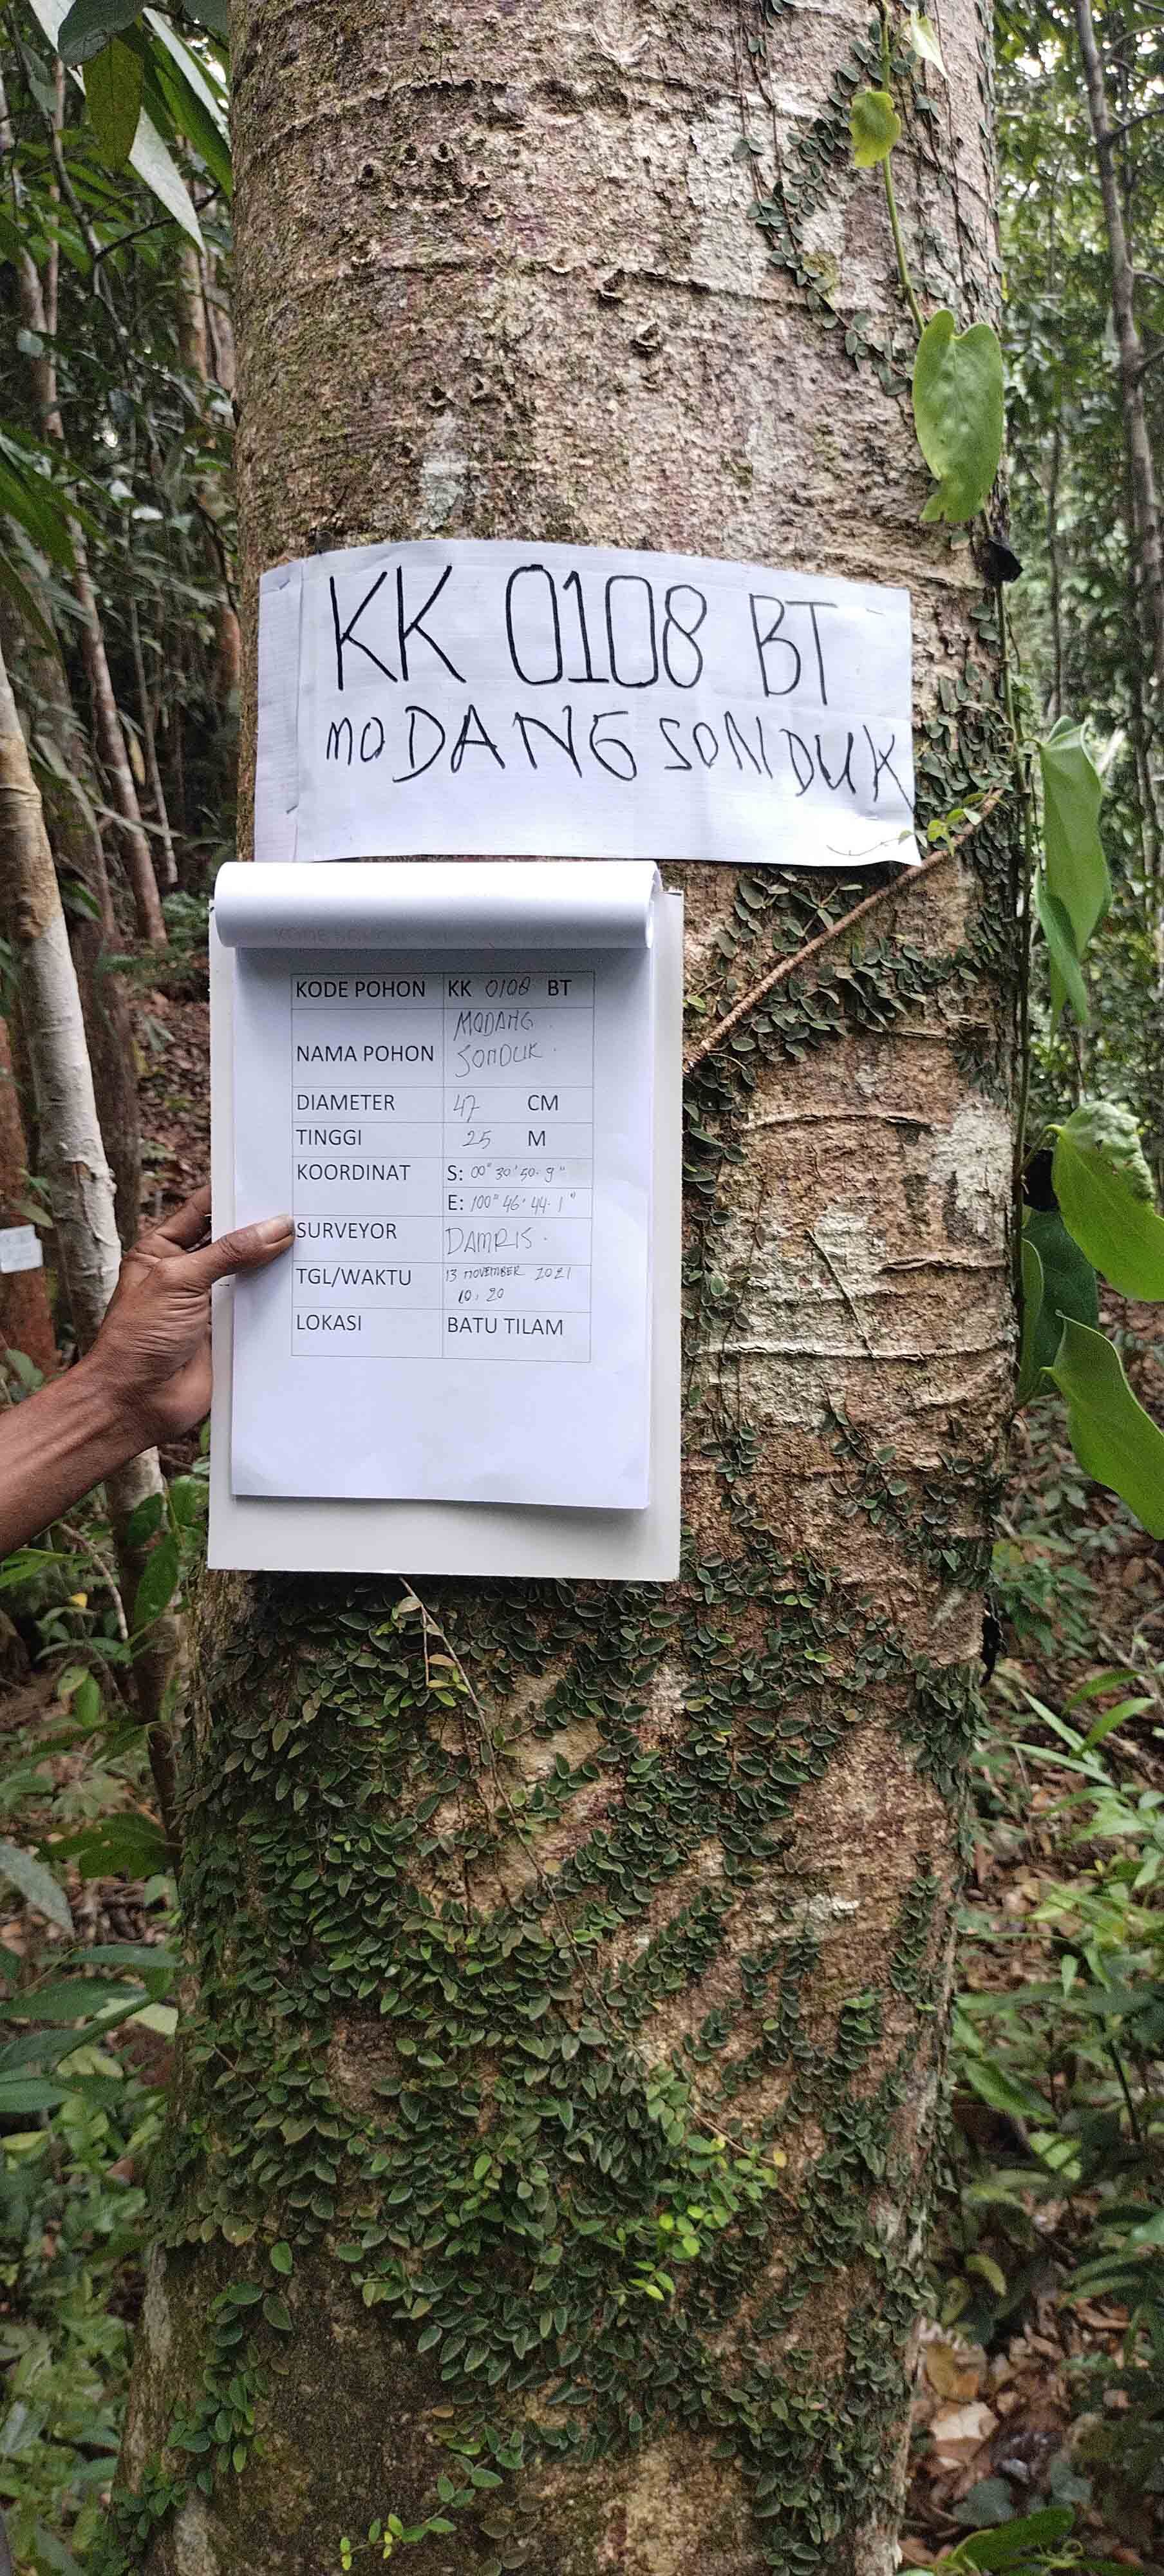 KK 0108 BT
MODANG SONDUK
KODE POHON KK 0108 BT
NAMA POHON MODANG SONDUK.
DIAMETER 47 CM
TINGGI 25 M
KOORDINAT S: 00° 30' 50.9"
E: 100° 46' 44.1"
SURVEYOR DAMRIS.
TGL/WAKTU 13 NOVEMBER 2021
10.20
LOKASI BATU TILAM